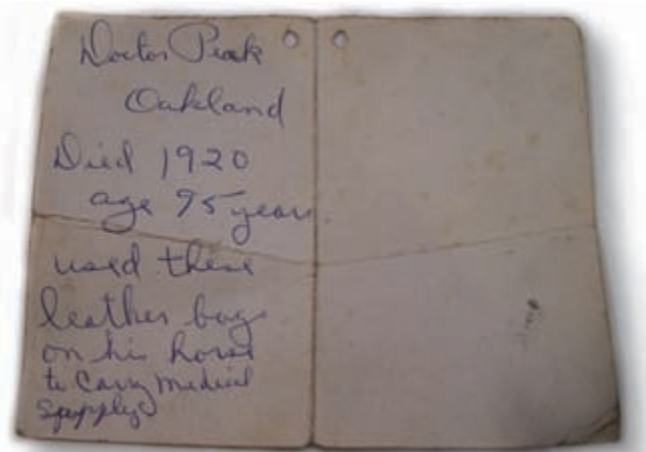 Doctor Peak
Oakland
Died 1920
age 95 years.
used these
leather bags
on his horse
to Carry Medical
Supply